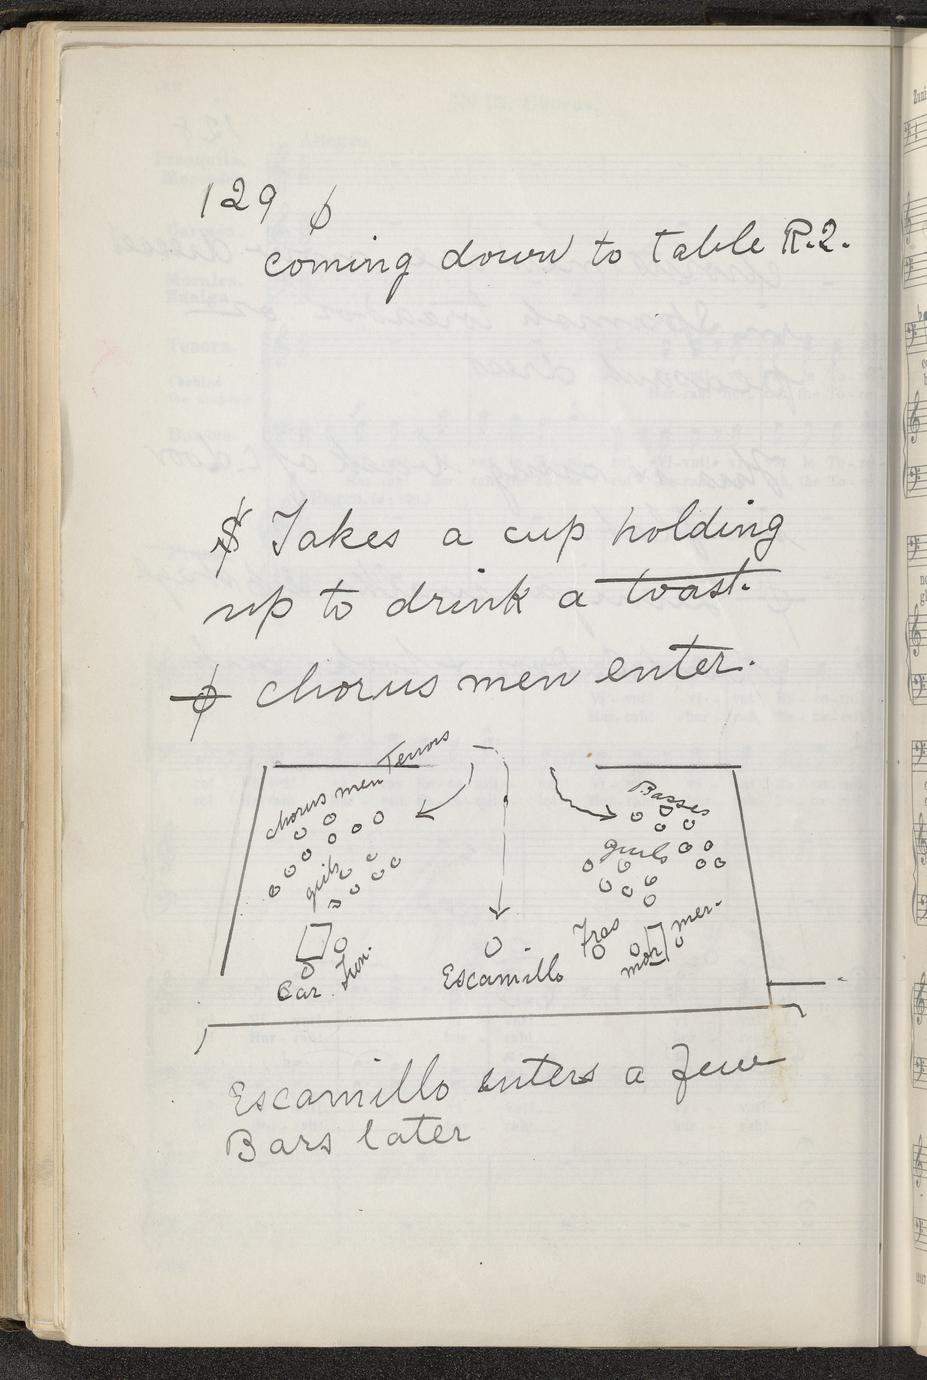 129 ϕ
coming down to table R.2.
$ Takes a cup holding
up to drink a toast.
ϕ chorus men enter.
Tenors
chorus men
Basses
girls
girls
Fras
mer.
mor
Car.
Escamillo
Escamillo enters a few
Bars later